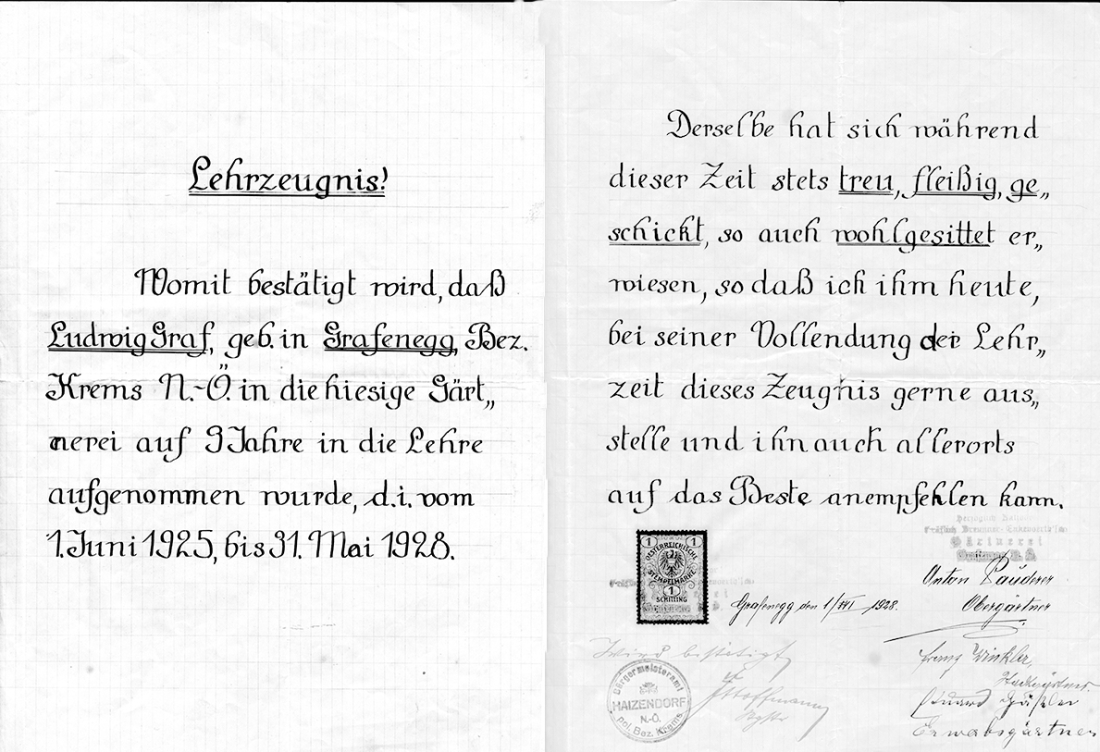 Lehrzeugnis!
Womit bestätigt wird, daß
Ludwig Graf, geb. in Grafenegg, Bez.
Krems N.-Ö. in die hiesige Gärt„
nerei auf 3 Jahre in die Lehre
aufgenommen wurde, d.i. vom
1. Juni 1925, bis 31. Mai 1928.
Derselbe hat sich während
dieser Zeit stets treu, fleißig, ge„
schickt, so auch wohlgesittet er„
wiesen, so daß ich ihm heute,
bei seiner Vollendung der Lehr„
zeit dieses Zeugnis gerne aus„
stelle und ihn auch allerorts
auf das Beste anempfehlen kann.
Gärtnerei
1 1
OESTERREICHISCHE
STEMPELMARKE
1
SCHILLING
Grafenegg den 1/VI 1928.
Anton
Obergärtner
Wird bestätigt
Hoffmann
Bürgermeisteramt
HAIZENDORF
N.-Ö.
pol. Bez. Krems
Franz Winkler,
Eduard
Erwerbsgärtner